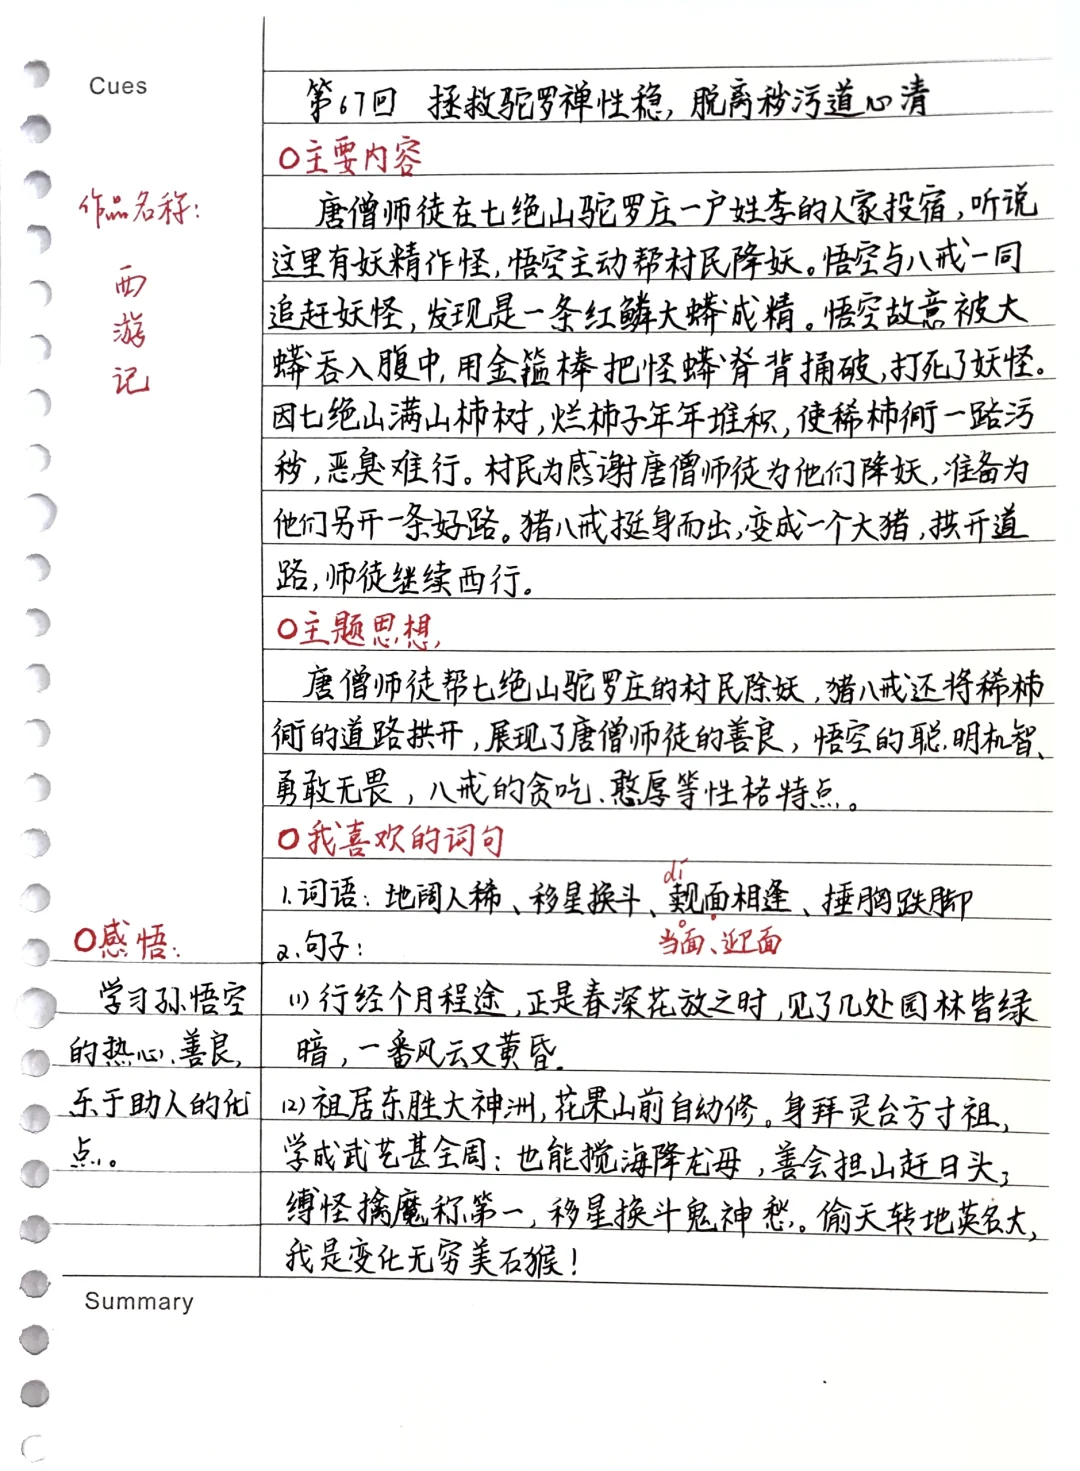 Cues
第67回 拯救驼罗禅性稳，脱离秽污道心清
○主要内容
作品名称：
西
游
记
唐僧师徒在七绝山驼罗庄一户姓李的人家投宿，听说
这里有妖精作怪，悟空主动帮村民降妖。悟空与八戒一同
追赶妖怪，发现是一条红鳞大蟒成精。悟空故意被大
蟒吞入腹中，用金箍棒把怪蟒脊背捅破，打死了妖怪。
因七绝山满山柿树，烂柿子年年堆积，使稀柿衕一路污
秽，恶臭难行。村民为感谢唐僧师徒为他们降妖，准备为
他们另开一条好路。猪八戒挺身而出，变成一个大猪，拱开道
路，师徒继续西行。
○主题思想
唐僧师徒帮七绝山驼罗庄的村民除妖，猪八戒还将稀柿
衕的道路拱开，展现了唐僧师徒的善良，悟空的聪明机智、
勇敢无畏，八戒的贪吃、憨厚等性格特点。
○我喜欢的词句
dí
1.词语：地阔人稀、移星换斗、觌面相逢、捶胸跌脚
当面、迎面
2.句子：
(1)行经个月程途，正是春深花放之时，见了几处园林皆绿
暗，一番风云又黄昏.
(2)祖居东胜大神洲，花果山前自幼修。身拜灵台方寸祖，
学成武艺甚全周：也能搅海降龙母，善会担山赶日头；
缚怪擒魔称第一，移星换斗鬼神愁。偷天转地英名大，
我是变化无穷美石猴！
○感悟：
学习孙悟空
的热心、善良，
乐于助人的优
点。
Summary